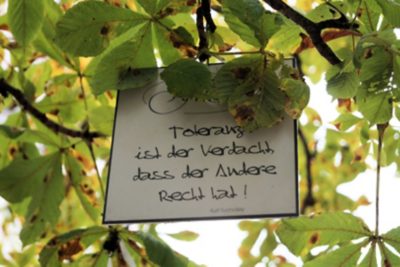 Toleranz:
ist der Verdacht,
dass der Andere
Recht hat!